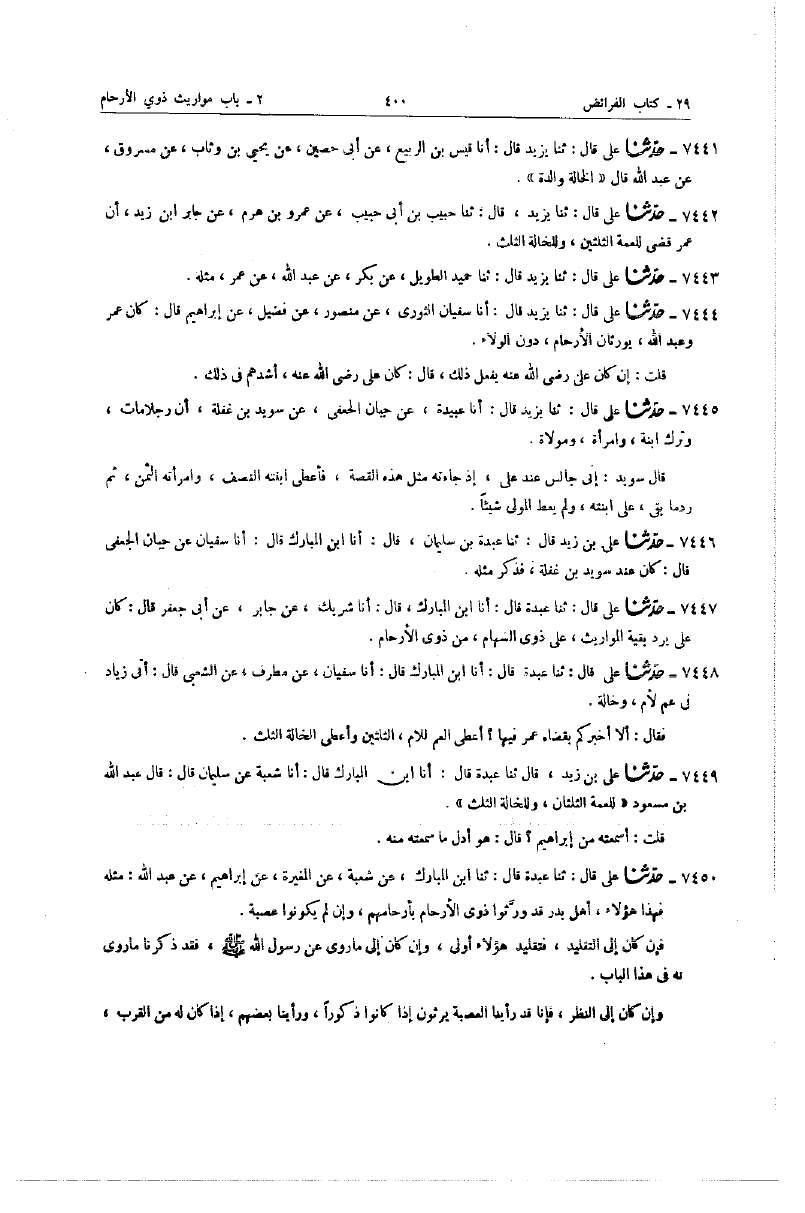 ٢٩ - كتاب الفرائض ٤٠٠ ٢ - باب مواريث ذوي الأرحام
٧٤٤١ - حدّثنا على قال : ثنا يزيد قال : أنا قيس بن الربيع ، عن أبى حصين ، عن يحيى بن وثاب ، عن مسروق ،
عن عبد الله قال « الخالة والدة » .
٧٤٤٢ - حدّثنا على قال : ثنا يزيد ، قال : ثنا حبيب بن أبى حبيب ، عن عمرو بن هرم ، عن جابر ابن زيد ، أن
عمر قضى للعمة الثلثين ، وللخالة الثلث .
٧٤٤٣ - حدّثنا على قال : ثنا يزيد قال : ثنا حميد الطويل ، عن بكر ، عن عبد الله ، عن عمر ، مثله .
٧٤٤٤ - حدّثنا على قال : ثنا يزيد قال : أنا سفيان الثورى ، عن منصور ، عن فضيل ، عن إبراهيم قال : كان عمر
وعبد الله ، يورثان الأرحام ، دون الولاء .
قلت : إن كان على رضى الله عنه يفعل ذلك ، قال : كان على رضى الله عنه ، أشدهم فى ذلك .
٧٤٤٥ - حدّثنا على قال : ثنا يزيد قال : أنا عبيدة ، عن حيان الجعفى ، عن سويد بن غفلة ، أن رجلا مات ،
وترك ابنة ، وامرأة ، ومولاة .
قال سويد : إنى جالس عند على ، إذ جاءته مثل هذه القصة ، فأعطى ابنته النصف ، وامرأته الثمن ، ثم
رد ما بقى ، على ابنته ، ولم يعط المولى شيئاً .
٧٤٤٦ - حدّثنا على بن زيد قال : ثنا عبدة بن سليمان ، قال : أنا ابن المبارك قال : أنا سفيان عن حيان الجعفى
قال : كان عند سويد بن غفلة ، فذكر مثله .
٧٤٤٧ - حدّثنا على قال : ثنا عبدة قال : أنا ابن المبارك ، قال : أنا شريك ، عن جابر ، عن أبى جعفر قال : كان
على يرد بقية المواريث ، على ذوى السهام ، من ذوى الأرحام .
٧٤٤٨ - حدّثنا على قال : ثنا عبدة قال : أنا ابن المبارك قال : أنا سفيان ، عن مطرف ، عن الشعبى قال : أتى زياد
فى عم لأم ، وخالة .
فقال : ألا أخبركم بقضاء عمر فيها ؟ أعطى العم للام ، الثلثين وأعطى الخالة الثلث .
٧٤٤٩ - حدّثنا على بن زيد ، قال ثنا عبدة قال : أنا ابن المبارك قال : أنا شعبة عن سليمان قال : قال عبد الله
بن مسعود « للعمة الثلثان ، وللخالة الثلث » .
قلت : أسمعته من إبراهيم ؟ قال : هو أدل ما سمعته منه .
٧٤٥٠ - حدّثنا على قال : ثنا عبدة قال : ثنا ابن المبارك ، عن شعبة ، عن المغيرة ، عن إبراهيم ، عن عبد الله : مثله
فهذا هؤلاء ، أهل بدر قد ورَّثوا ذوى الأرحام بأرحامهم ، وإن لم يكونوا عصبة .
فإن كان إلى التقليد ، فتقليد هؤلاء أولى ، وإن كان إلى ما روى عن رسول الله ﷺ ، فقد ذكرنا ما روى
نه فى هذا الباب .
وإن كان إلى النظر ، فإنا قد رأينا العصبة يرثون إذا كانوا ذكوراً ، ورأينا بعضهم ، إذا كان له من القرب ،